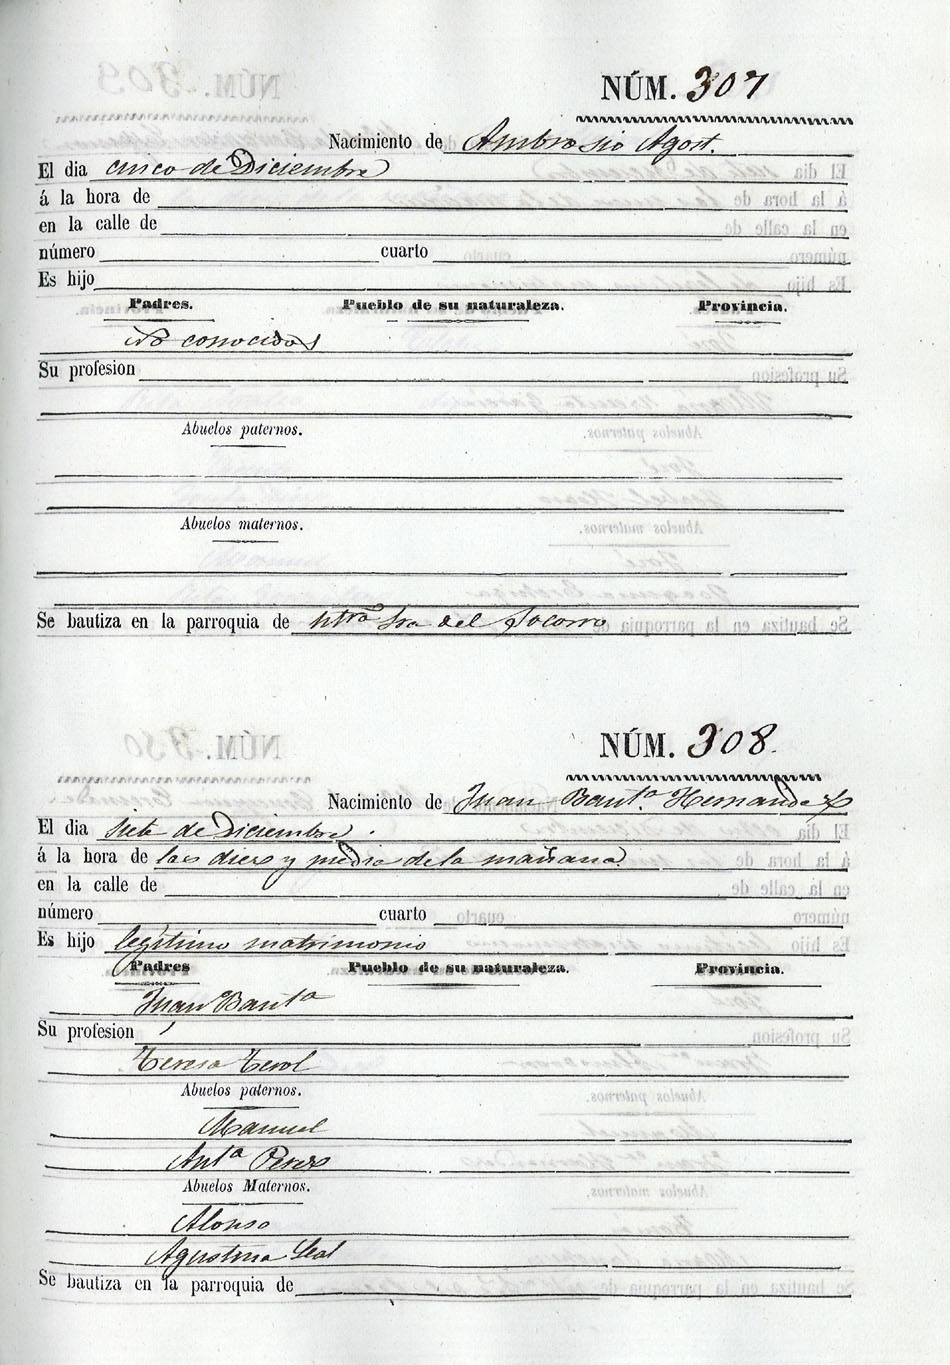 NÚM. 307
Nacimiento de Ambrosio Agost.
El dia cinco de Diciembre
á la hora de
en la calle de
número cuarto
Es hijo
Padres. Pueblo de su naturaleza. Provincia.
No conocidos
Su profesion
Abuelos paternos.
Abuelos maternos.
Se bautiza en la parroquia de Ntra Sra del Socorro
NÚM. 308.
Nacimiento de Juan Bauta. Hernandez
El dia siete de Diciembre.
á la hora de las diez y media de la mañana
en la calle de
número cuarto
Es hijo legítimo matrimonio
Padres Pueblo de su naturaleza. Provincia.
Juan Bauta
Su profesion
Teresa Terol
Abuelos paternos.
Manuel
Anta Perez
Abuelos Maternos.
Alonso
Agustina Leal
Se bautiza en la parroquia de